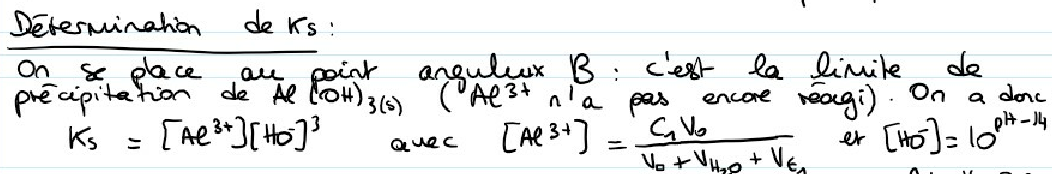 Détermination de Ks :
On se place au point anguleux B : c'est la limite de
précipitation de Al(OH)3(s) (Al3+ n'a pas encore réagi). On a donc
Ks = [Al3+][HO-]^3 avec [Al3+] = C1V0 / (V0 + VH2O + VE1) et [HO-] = 10^(pH-14)